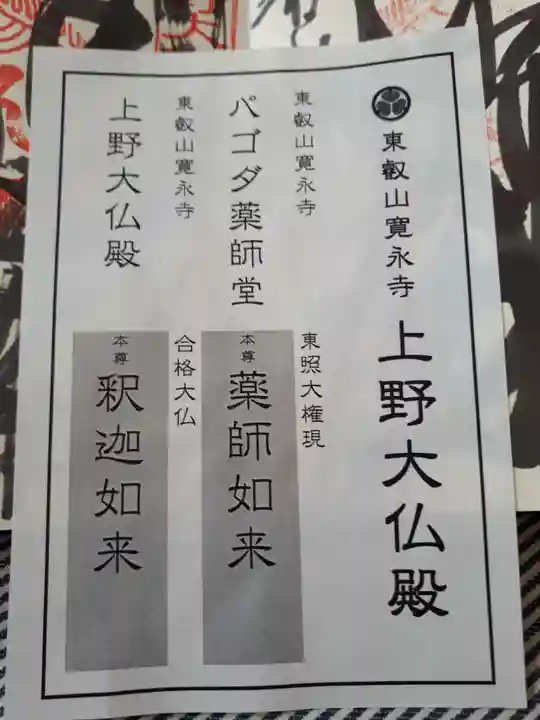 東叡山寛永寺 上野大仏殿
東叡山寛永寺 東照大権現
パゴダ薬師堂 本尊 薬師如来
東叡山寛永寺 合格大仏
上野大仏殿 本尊 釈迦如来